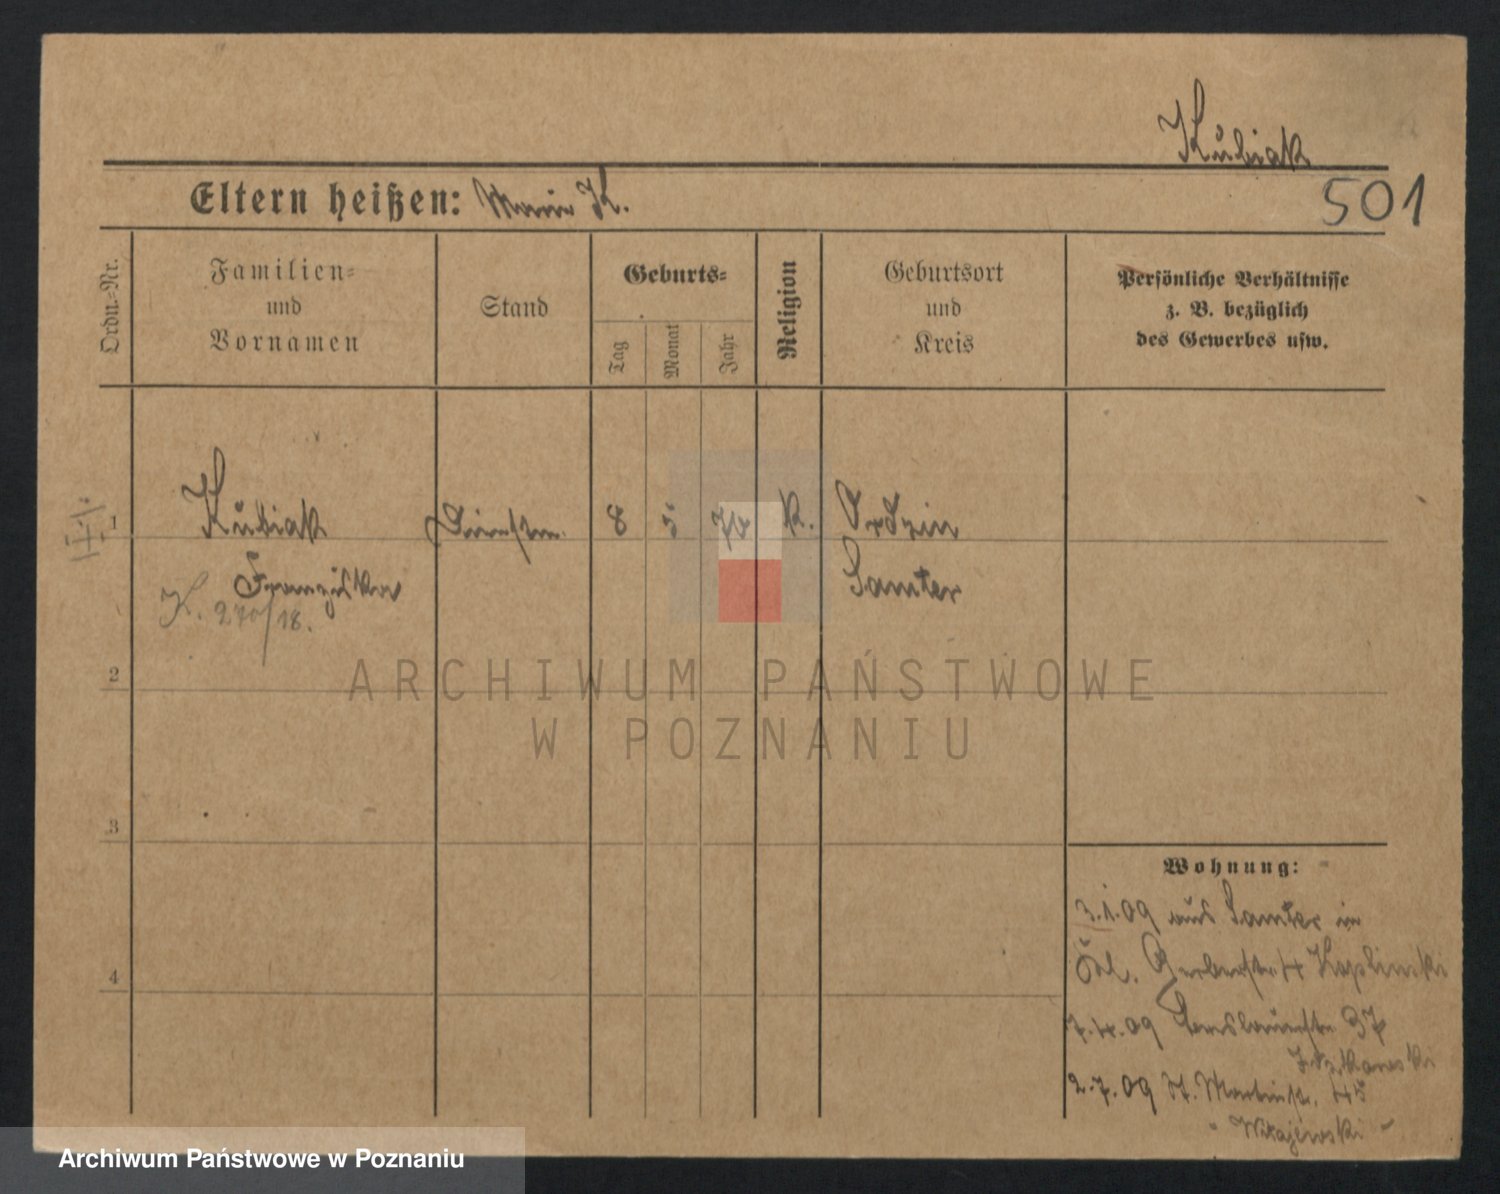 Kubiak
Eltern heißen: Marie K.
501
Ordn.-Nr.
Familien-
und
Vornamen
Stand
Geburts-
Tag
Monat
Jahr
Religion
Geburtsort
und
Kreis
Persönliche Verhältnisse
z. B. bezüglich
des Gewerbes usw.
1
Kubiak
8 5 K.
Samter
Franziska
K. 270/18.
2
ARCHIWUM PAŃSTWOWE
W POZNANIU
3
4
Wohnung:
3.1.09 aus Samter in
Gerberstr. 4
7.4.09 37
2.7.09 St. Martinstr. 45
Archiwum Państwowe w Poznaniu